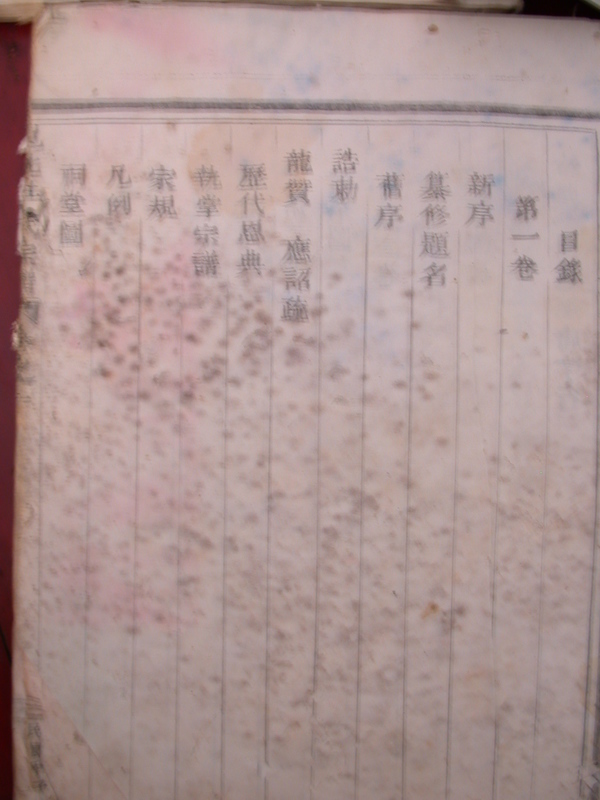 目錄
第一卷
新序
纂修題名
舊序
誥勅
龍賀 應詔疏
歷代恩典
執掌宗譜
宗規
凡例
祠堂圖